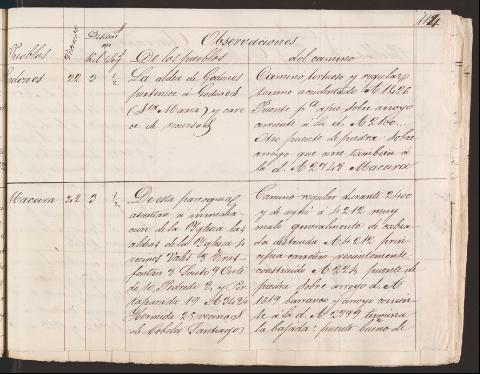 114
Observaciones
Pueblos
Distan
en
Kil
De los pueblos
del camino
Godones 22 3 1/2
La aldea de Godones
pertenece á Godones
(Sta María) y care
ce de recursos
Camino tortuoso y regular
terreno accidentado A 1426
Puente pa a pie sobre arroyo
corriente á la d. A 2100...
Otro puente de piedra sobre
arroyo que corre tambien á
la d. A 2743 Maceira
Maceira 202 3 1/2
De esta parroquia
asientan á inmedia-
cion de la Yglesia las
aldeas de la Yglesia 4
vecinos Vals 3 Eras
fontan 3 Souto 9 Outei
de 10, Pedrido 2, y Pie
A 2424
Hermida 25 vecinos S
de Cobelo Santiago)
Camino regular durante 2400
y de aqui á 4212 muy
malo generalmente de calza-
da destruida A 4212 prin-
cipia camino recientemente
construido A 224 puente de
piedra sobre arroyo d. A
1619 barranco y arroyo corrien-
te á la d. A 2799 termina
la bajada: puente bueno de